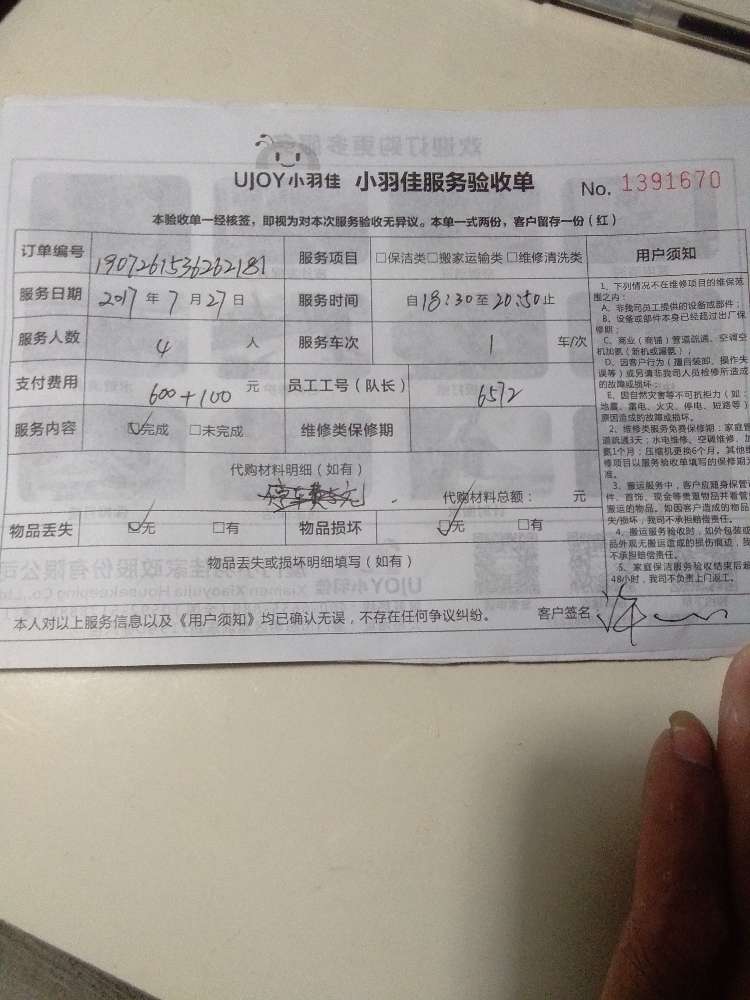 UJOY小羽佳 小羽佳服务验收单 No. 1391670
本验收单一经核签，即视为对本次服务验收无异议。本单一式两份，客户留存一份（红）
订单编号 1907261536262181 服务项目 □保洁类□搬家运输类 □维修清洗类
服务日期 2017 年 7 月 27 日 服务时间 自 18:30 至 20:50 止
服务人数 4 人 服务车次 1 车/次
支付费用 600+100 元 员工工号（队长） 6572
服务内容 ☑完成 □未完成 维修类保修期
代购材料明细（如有）
代购材料总额： 元
物品丢失 ☑无 □有 物品损坏 ☑无 □有
物品丢失或损坏明细填写（如有）
本人对以上服务信息以及《用户须知》均已确认无误，不存在任何争议纠纷。 客户签名
用户须知
1、下列情况不在维修项目的维保范
围之内：
A、非我司员工提供的设备或部件；
B、设备或部件本身已经超过出厂保
修期；
C、商业（商铺）管道疏通、空调空
机加氨（新机或漏氨）
D、因客户行为（擅自装卸、操作失
误等）或另请非我司人员检修所造成
的故障或损坏
E、因自然灾害等不可抗拒力（如：
地震、雷电、火灾、停电、短路等）
原因造成的故障或损坏。
2、维修类服务免费保修期：家庭管
道疏通3天；水电维修、空调维修、加
氨1个月；压缩机更换6个月，其他维
修项目以服务验收单填写的保修期为
准。
3、搬运服务中，客户应随身保管证
件、首饰、现金等贵重物品并看管
搬运的物品。如因客户造成的物品
失/损坏，我司不承担赔偿责任。
4、搬运服务验收时，如外包装或
品外观无搬运造成的损伤痕迹，我
不承担赔偿责任。
5、家庭保洁服务验收结束后超
48小时，我司不负责上门返工。